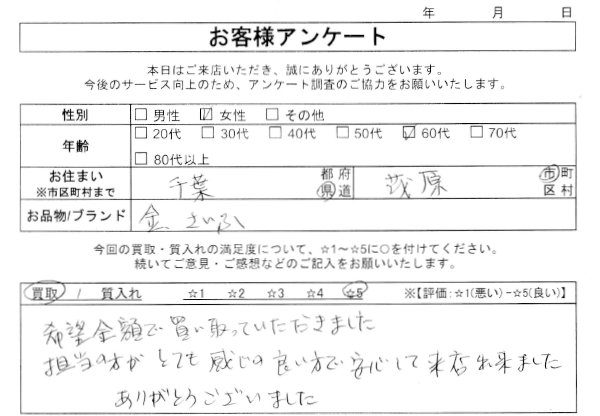 年 月 日
お客様アンケート
本日はご来店いただき、誠にありがとうございます。
今後のサービス向上のため、アンケート調査のご協力をお願いいたします。
性別 □ 男性 ☑ 女性 □ その他
年齢 □ 20代 □ 30代 □ 40代 □ 50代 ☑ 60代 □ 70代
□ 80代以上
お住まい ※市区町村まで 千葉 都府県道 茂原 市町区村
お品物/ブランド 金 さいふ
今回の買取・質入れの満足度について、☆1～☆5に○を付けてください。
続いてご意見・ご感想などのご記入をお願いいたします。
買取 / 質入れ ☆1 ☆2 ☆3 ☆4 ☆5 ※【評価:☆1(悪い)-☆5(良い)】
希望金額で買い取っていただきました
担当の方がとても感じの良い方で安心して来店出来ました
ありがとうございました